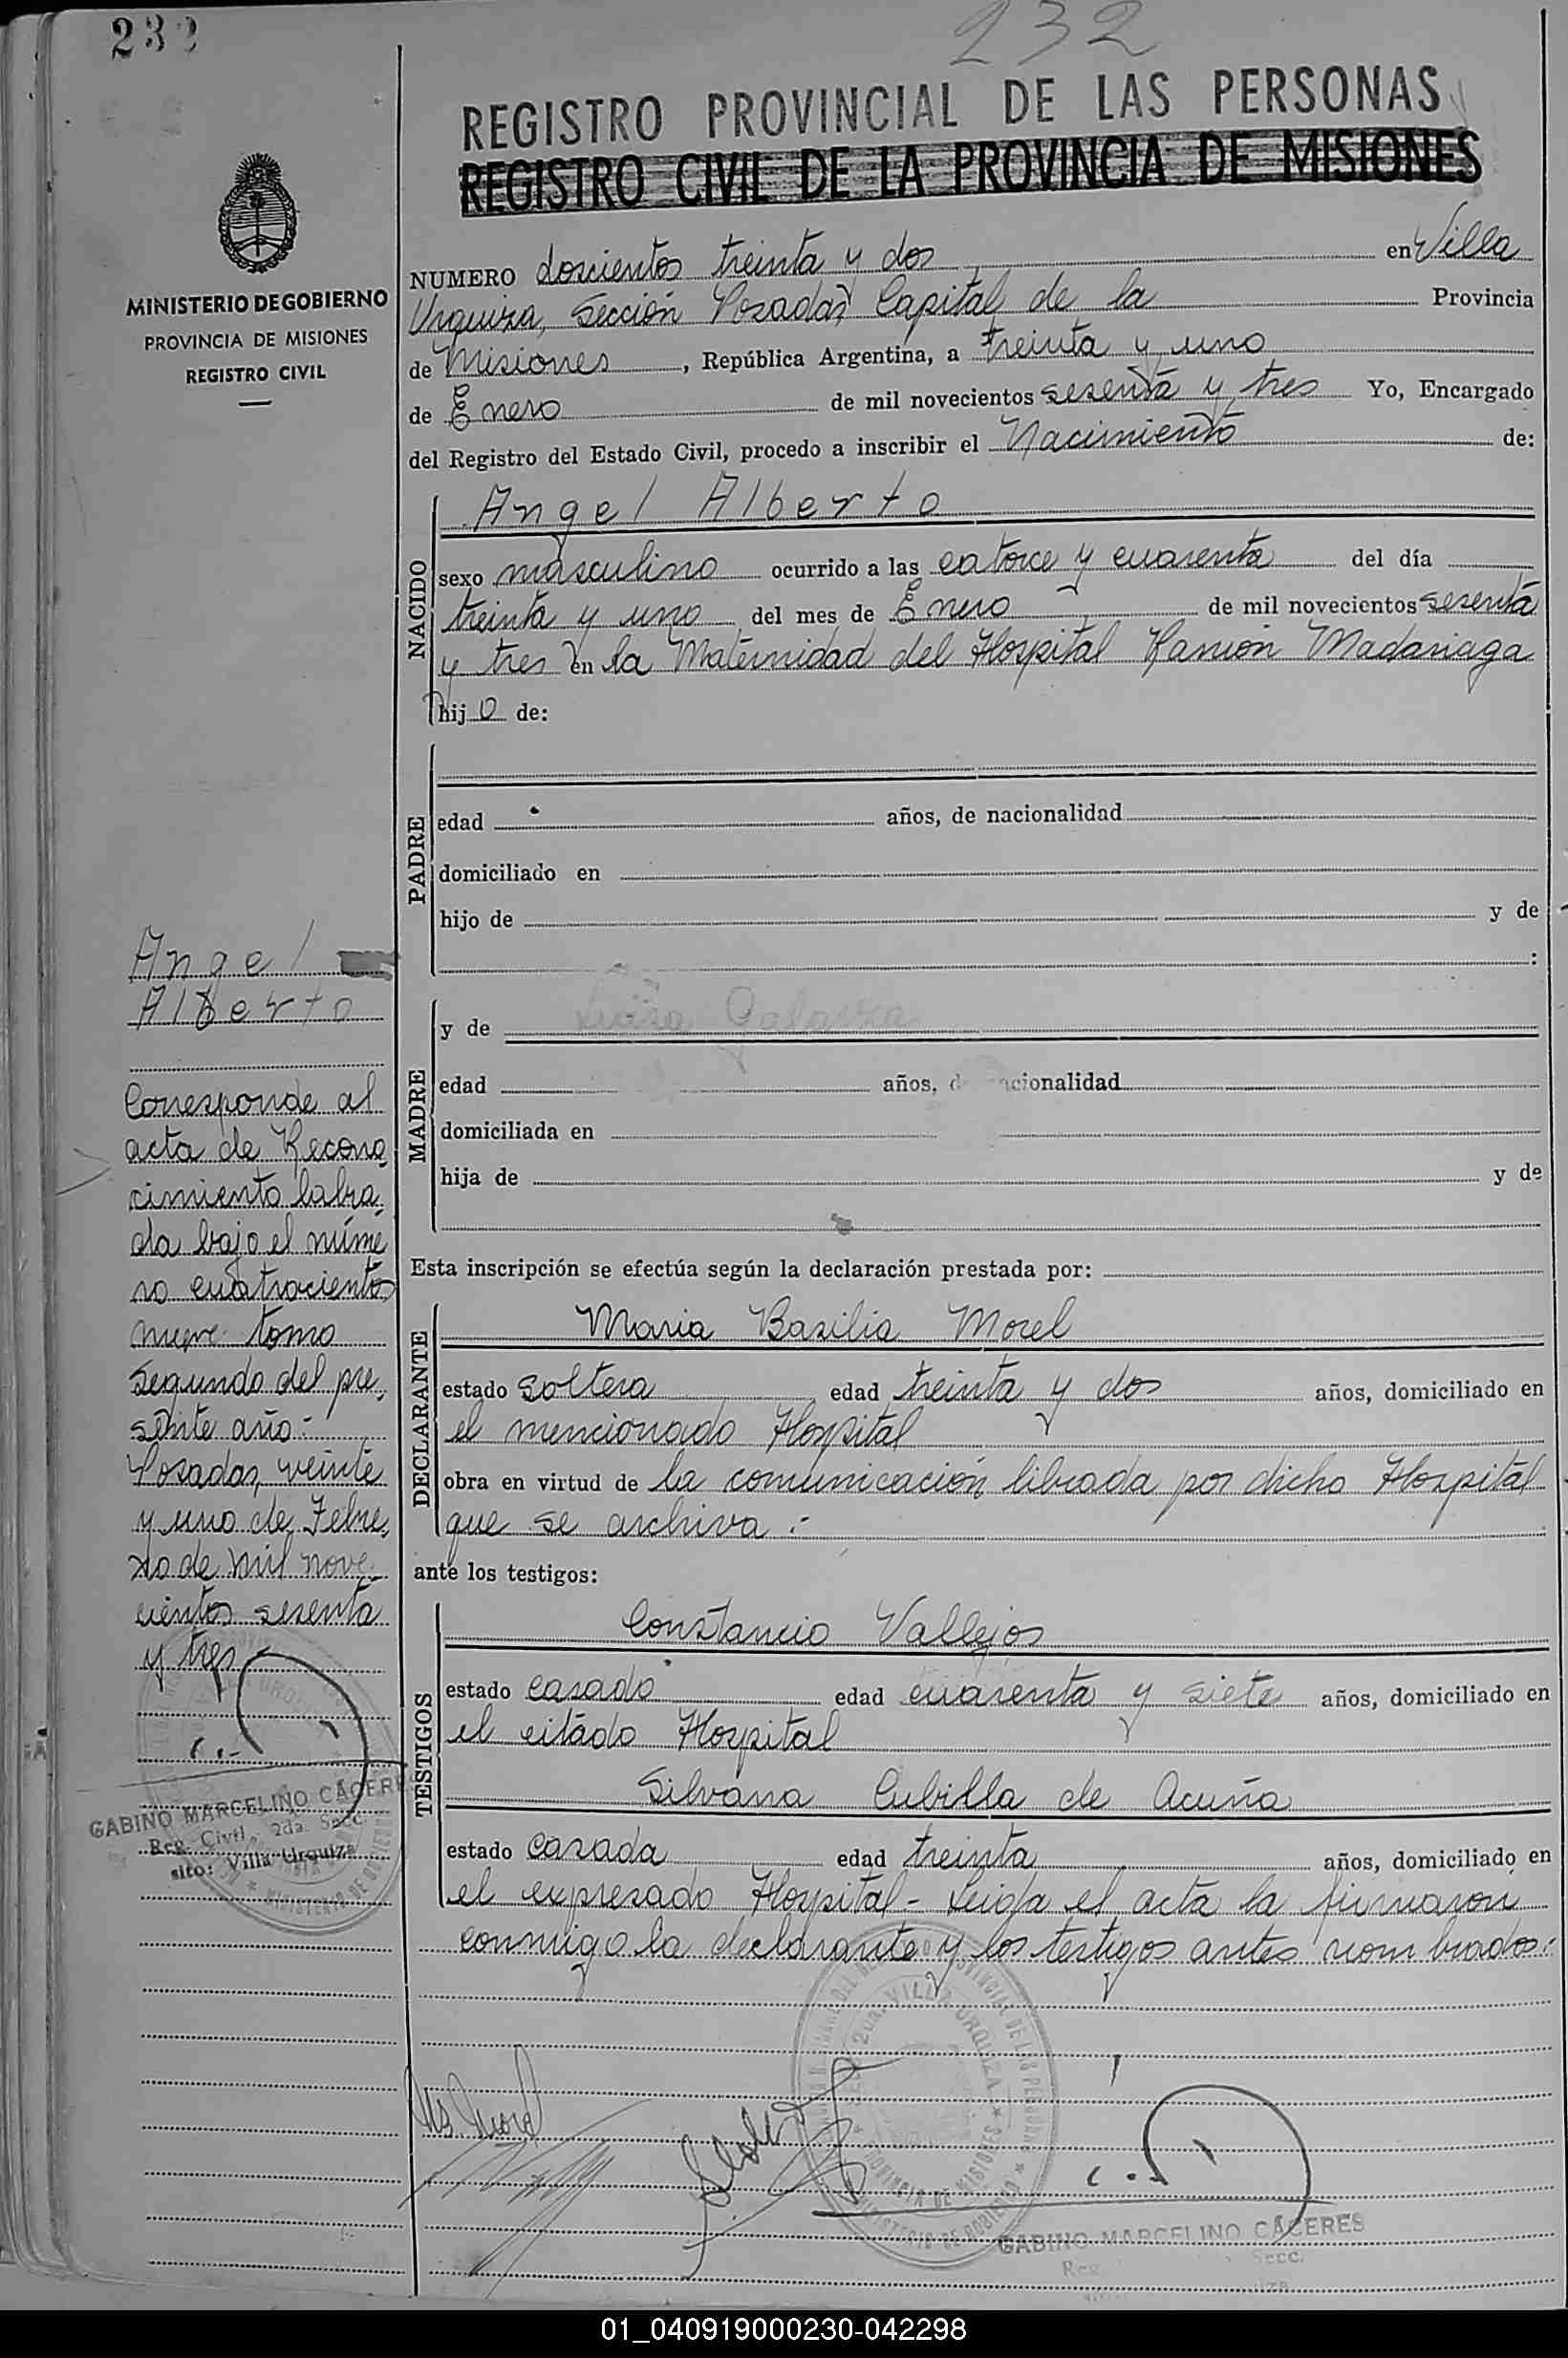 232
232
REGISTRO PROVINCIAL DE LAS PERSONAS
REGISTRO CIVIL DE LA PROVINCIA DE MISIONES
MINISTERIO DE GOBIERNO
PROVINCIA DE MISIONES
REGISTRO CIVIL
NUMERO doscientos treinta y dos en Villa
Urquiza, Sección Posadas Capital de la Provincia
de Misiones, República Argentina, a treinta y uno
de Enero de mil novecientos sesenta y tres Yo, Encargado
del Registro del Estado Civil, procedo a inscribir el Nacimiento de:
NACIDO
Angel Alberto
sexo masculino ocurrido a las catorce y cuarenta del día
treinta y uno del mes de Enero de mil novecientos sesenta
y tres en la Maternidad del Hospital Ramón Madariaga
hijo de:
PADRE
edad años, de nacionalidad
domiciliado en
hijo de y de
:
MADRE
y de Luisa Galarza
edad años, de nacionalidad
domiciliada en
hija de y de
Esta inscripción se efectúa según la declaración prestada por:
DECLARANTE
Maria Basilia Morel
estado soltera edad treinta y dos años, domiciliado en
el mencionado Hospital
obra en virtud de la comunicación librada por dicho Hospital
que se archiva.-
ante los testigos:
TESTIGOS
Constancio Vallejos
estado casado edad cuarenta y siete años, domiciliado en
el citado Hospital
Silvana Cubilla de Acuña
estado casada edad treinta años, domiciliado en
el expresado Hospital - Leida el acta la firmaron
conmigo la declarante y los testigos antes nombrados.-
Angel
Alberto
Corresponde al
acta de Recono
cimiento labra
da bajo el núme
ro cuatrocientos
nueve tomo
segundo del pre
sente año.-
Posadas, veinte
y uno de Febre
ro de mil nove
cientos sesenta
y tres.-
GABINO MARCELINO CÁCERES
Reg. Civil, 2da. Secc.
sito: Villa Urquiza
Ms. Morel
2da. VILLA URQUIZA
PROVINCIA DE MISIONES
MINISTERIO DE GOBIERNO
GABINO MARCELINO CÁCERES
Reg. Secc.
01_040919000230-042298